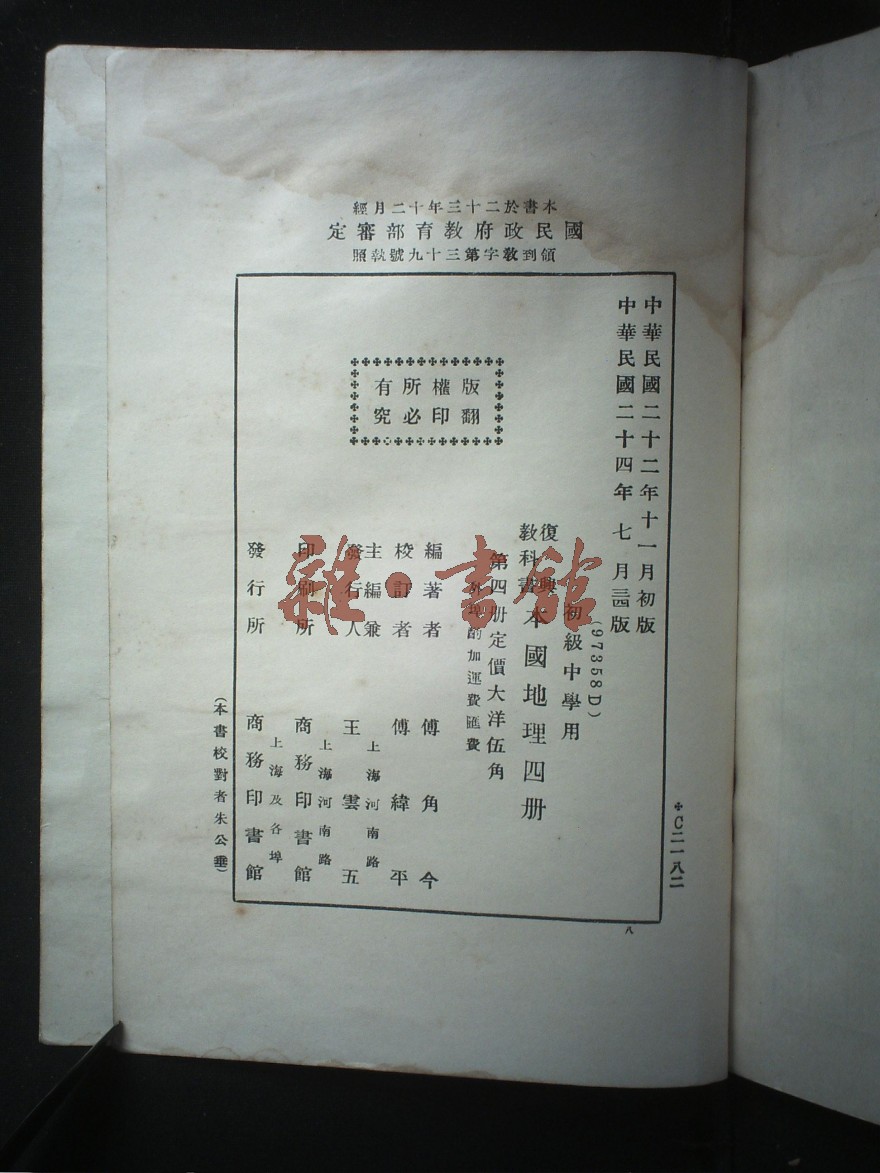 本書於二十三年十二月經
國民政府教育部審定
領到教字第三十九號執照
✢C二一八二
中華民國二十二年十一月初版
中華民國二十四年七月三四版
(97358D)
初級中學用
復興
教科書
本國地理四册
第四册定價大洋伍角
外埠酌加運費匯費
版權所有
翻印必究
編著者 傅角今
校訂者 傅緯平
主編兼
發行人
上海河南路
王雲五
印刷所
上海河南路
商務印書館
發行所
上海及各埠
商務印書館
(本書校對者朱公垂)
八
雜·書館